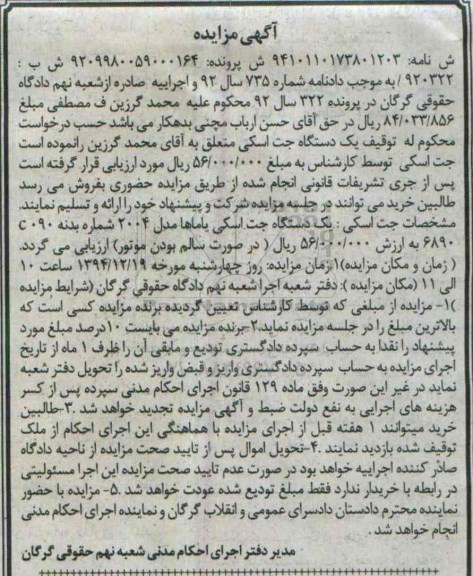 آگهی مزایده
ش نامه: ۹۴۱۰۱۱۰۱۷۳۸۰۱۲۰۳ ش پرونده: ۹۲۰۹۹۸۰۰۵۹۰۰۰۱۶۴ ش ب :
۹۲۰۳۲۲ / به موجب دادنامه شماره ۷۳۵ سال ۹۲ و اجراییه صادره ازشعبه نهم دادگاه
حقوقی گرگان در پرونده ۳۲۲ سال ۹۲ محکوم علیه محمد گرزین ف مصطفی مبلغ
۸۴/۰۳۳/۸۵۶ ریال در حق آقای حسن ارباب مجنی بدهکار می باشد حسب درخواست
محکوم له توقیف یک دستگاه جت اسکی متعلق به آقای محمد گرزین رانموده است
جت اسکی توسط کارشناس به مبلغ ۵۶/۰۰۰/۰۰۰ ریال مورد ارزیابی قرار گرفته است
پس از جری تشریفات قانونی انجام شده از طریق مزایده حضوری بفروش می رسد
طالبین خرید می توانند در جلسه مزایده شرکت و پیشنهاد خود را ارائه و تسلیم نمایند.
مشخصات جت اسکی : یک دستگاه جت اسکی یاماها مدل ۲۰۰۴ شماره بدنه c ۰۹۰
۶۸۹۰ به ارزش ۵۶/۰۰۰/۰۰۰ ریال ( در صورت سالم بودن موتور) ارزیابی می گردد.
( زمان و مکان مزایده)۱زمان مزایده: روز چهارشنبه مورخه ۱۳۹۴/۱۲/۱۹ ساعت ۱۰
الی ۱۱ (مکان مزایده ): دفتر شعبه اجرا شعبه نهم دادگاه حقوقی گرگان (شرایط مزایده
)۱- مزایده از مبلغی که توسط کارشناس تعیین گردیده برنده مزایده کسی است که
بالاترین مبلغ را در جلسه مزایده نماید.۲-برنده مزایده می بایست ۱۰درصد مبلغ مورد
پیشنهاد را نقدا به حساب سپرده دادگستری تودیع و مابقی آن را ظرف ۱ ماه از تاریخ
اجرای مزایده به حساب سپرده دادگستری واریز و قبض واریز شده را تحویل دفتر شعبه
نماید در غیر این صورت وفق ماده ۱۲۹ قانون اجرای احکام مدنی سپرده پس از کسر
هزینه های اجرایی به نفع دولت ضبط و آگهی مزایده تجدید خواهد شد .۳-طالبین
خرید میتوانند ۱ هفته قبل از اجرای مزایده با هماهنگی این اجرای احکام از ملک
توقیف شده بازدید نمایند .۴-تحویل اموال پس از تایید صحت مزایده از ناحیه دادگاه
صادر کننده اجراییه خواهد بود در صورت عدم تایید صحت مزایده این اجرا مسئولیتی
در رابطه با خریدار ندارد فقط مبلغ تودیع شده عودت خواهد شد .۵- مزایده با حضور
نماینده محترم دادستان دادسرای عمومی و انقلاب گرگان و نماینده اجرای احکام مدنی
انجام خواهد شد .
مدیر دفتر اجرای احکام مدنی شعبه نهم حقوقی گرگان